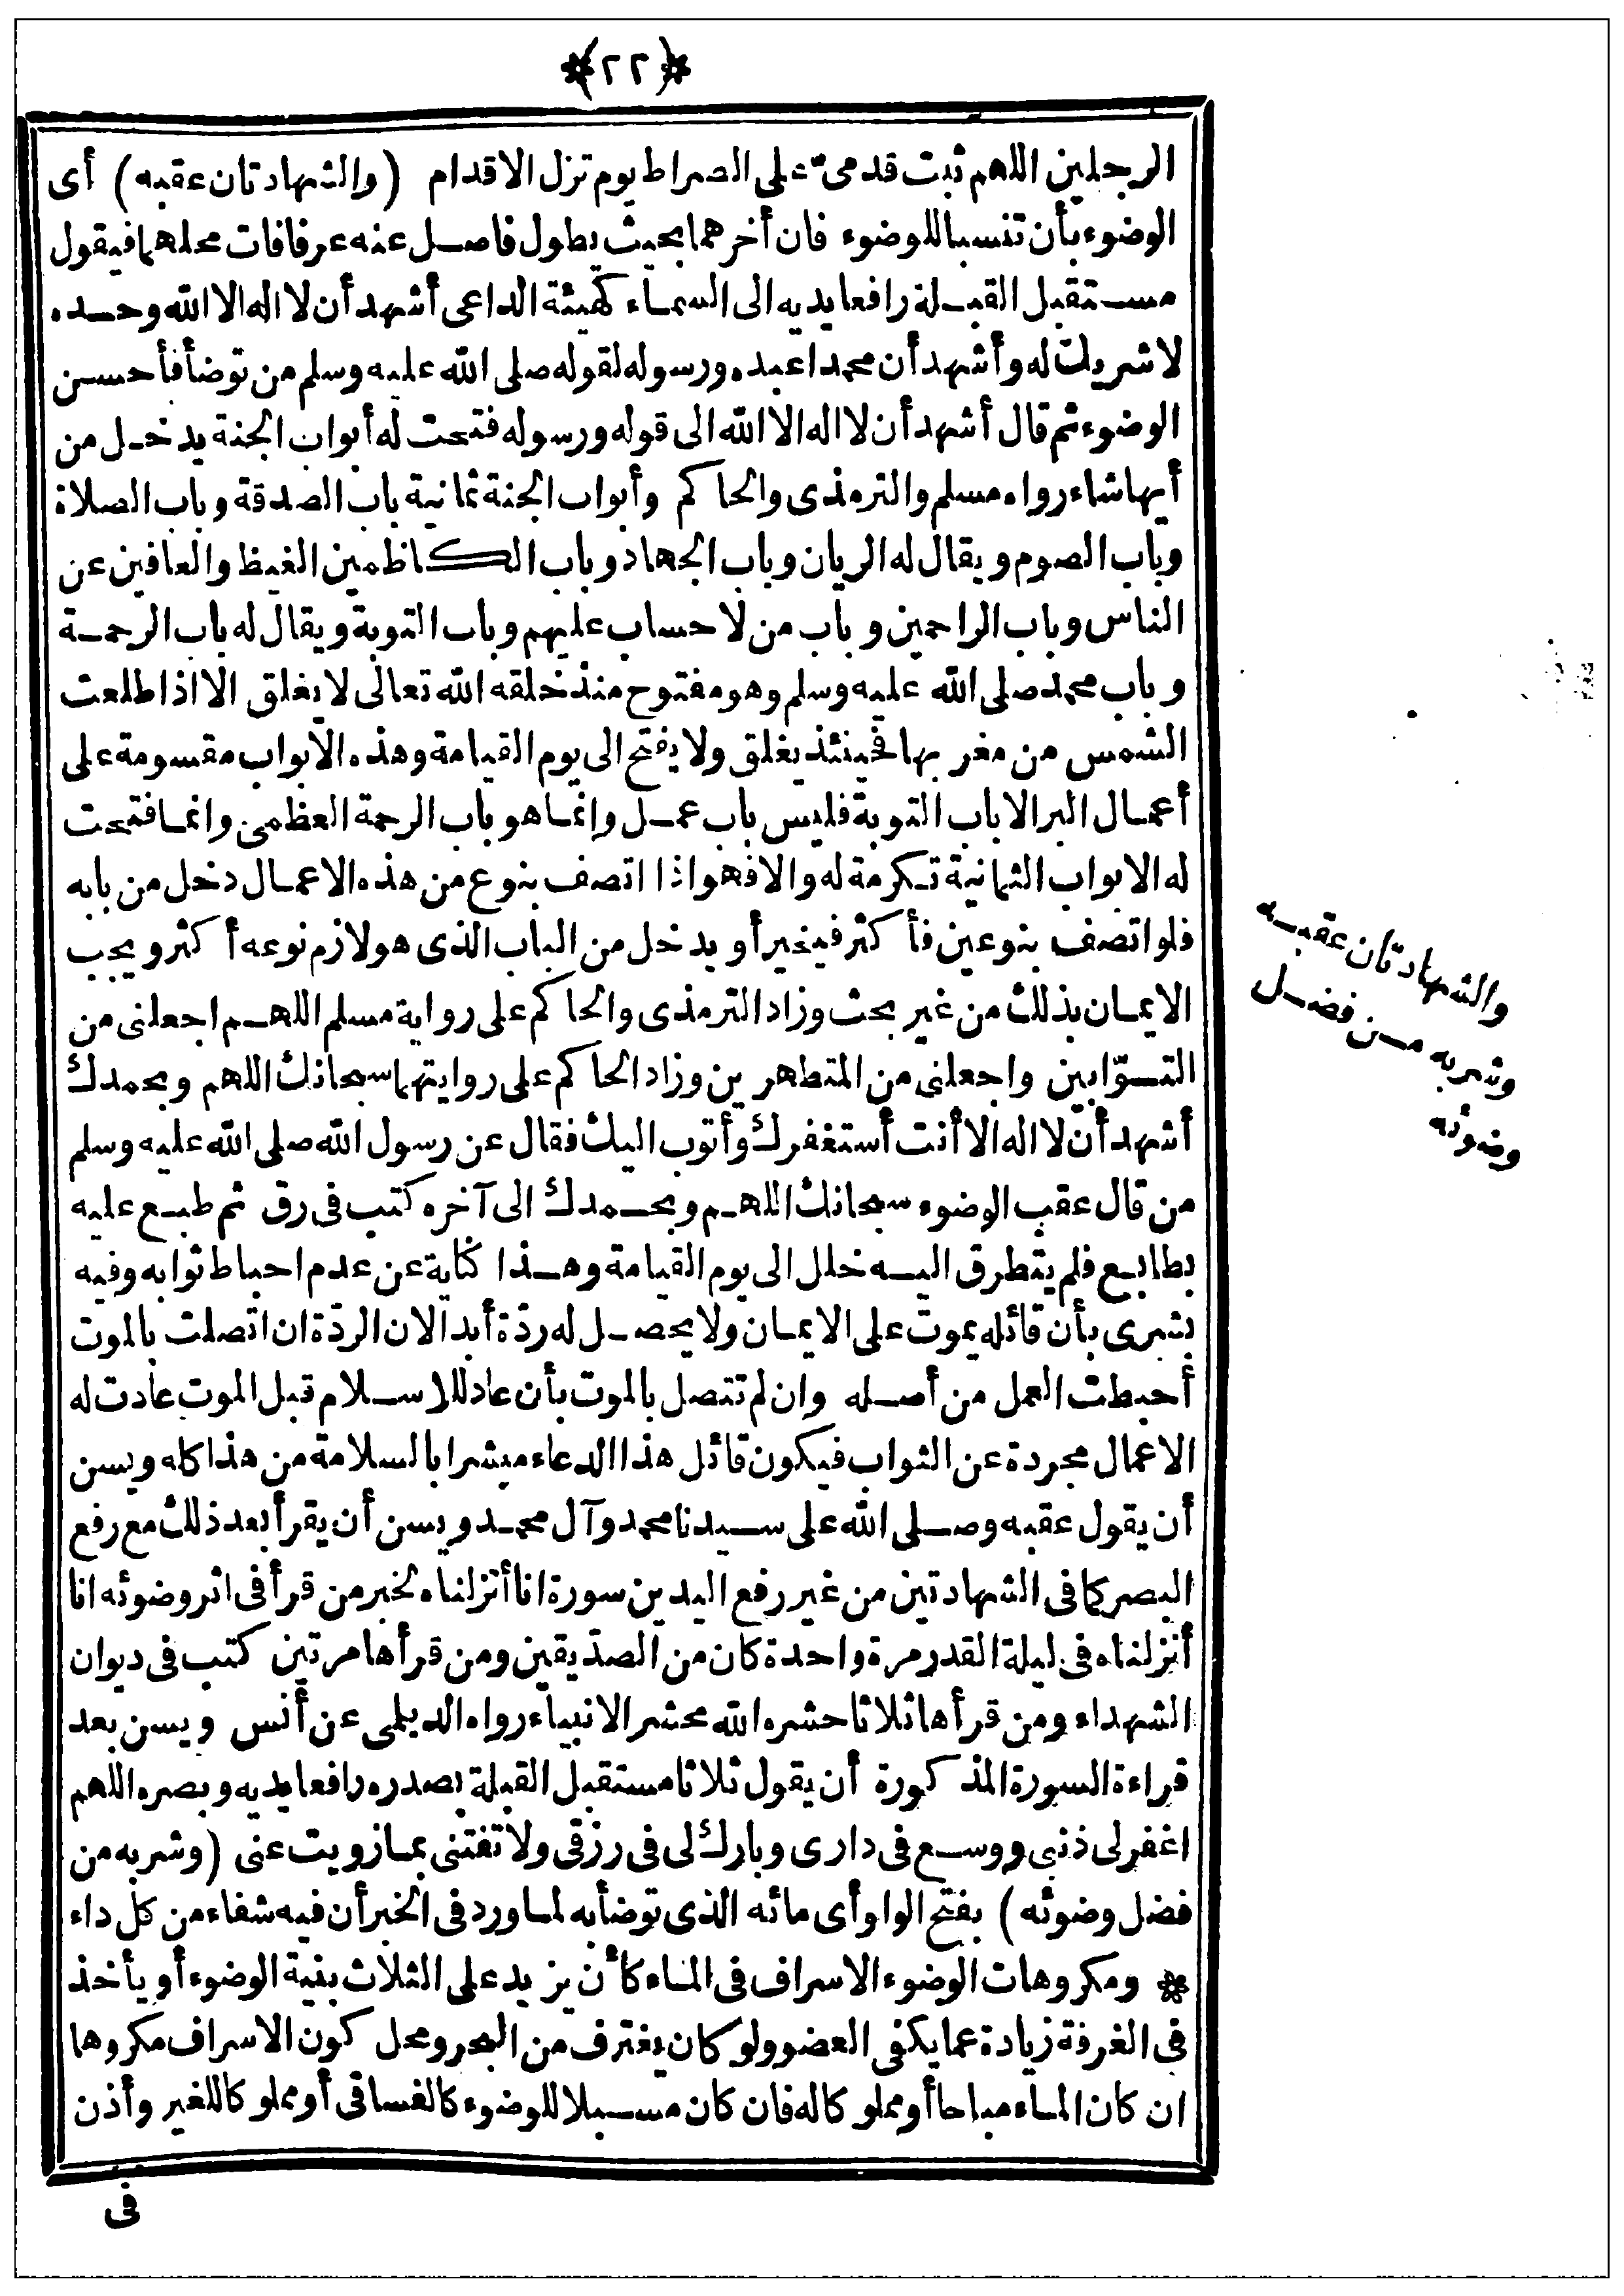 ﴿٢٢﴾
الرجلين اللهم ثبت قدمىّ على الصراط يوم تزل الاقدام (والشهادتان عقبه) أى
الوضوء بأن تنسبا للوضوء فان أخرهما بحيث يطول فاصل عنه عرفا فات محلهما فيقول
مستقبل القبلة رافعا يديه الى السماء كهيئة الداعى أشهد أن لا اله الا الله وحده
لا شريك له وأشهد أن محمدا عبده ورسوله لقوله صلى الله عليه وسلم من توضأ فأحسن
الوضوء ثم قال أشهد أن لا اله الا الله الى قوله ورسوله فتحت له أبواب الجنة يدخل من
أيها شاء رواه مسلم والترمذى والحاكم وأبواب الجنة ثمانية باب الصدقة وباب الصلاة
وباب الصوم ويقال له الريان وباب الجهاد وباب الكاظمين الغيظ والعافين عن
الناس وباب الراحمين وباب من لا حساب عليهم وباب التوبة ويقال له باب الرحمة
وباب محمد صلى الله عليه وسلم وهو مفتوح منذ خلقه الله تعالى لا يغلق الا اذا طلعت
الشمس من مغربها فحينئذ يغلق ولا يفتح الى يوم القيامة وهذه الابواب مقسومة على
أعمال البر الا باب التوبة فليس باب عمل وانما هو باب الرحمة العظمى وانما فتحت
له الابواب الثمانية تكرمة له والا فهو اذا اتصف بنوع من هذه الاعمال دخل من بابه
فلو اتصف بنوعين فأكثر فيخير أو يدخل من الباب الذى هو لازم نوعه أكثر ويجب
الايمان بذلك من غير بحث وزاد الترمذى والحاكم على رواية مسلم اللهم اجعلنى من
التوّابين واجعلنى من المتطهرين وزاد الحاكم على روايتهما سبحانك اللهم وبحمدك
أشهد أن لا اله الا أنت أستغفرك وأتوب اليك فقال عن رسول الله صلى الله عليه وسلم
من قال عقب الوضوء سبحانك اللهم وبحمدك الى آخره كتب فى رق ثم طبع عليه
بطابع فلم يتطرق اليه خلل الى يوم القيامة وهذا كناية عن عدم احباط ثوابه وفيه
بشرى بأن قائله يموت على الايمان ولا يحصل له ردّة أبدا لان الردّة ان اتصلت بالموت
أحبطت العمل من أصله وان لم تتصل بالموت بأن عاد للاسلام قبل الموت عادت له
الاعمال مجردة عن الثواب فيكون قائل هذا الدعاء مبشرا بالسلامة من هذا كله ويسن
أن يقول عقبه وصلى الله على سيدنا محمد وآل محمد ويسن أن يقرأ بعد ذلك مع رفع
البصر كما فى الشهادتين من غير رفع اليدين سورة انا أنزلناه لخبر من قرأ فى اثر وضوئه انا
أنزلناه فى ليلة القدر مرة واحدة كان من الصدّيقين ومن قرأها مرتين كتب فى ديوان
الشهداء ومن قرأها ثلاثا حشره الله محشر الانبياء رواه الديلمى عن أنس ويسن بعد
قراءة السورة المذكورة أن يقول ثلاثا مستقبل القبلة بصدره رافعا يديه وبصره اللهم
اغفر لى ذنبى ووسع فى دارى وبارك لى فى رزقى ولا تفتنى بما زويت عنى (وشربه من
فضل وضوئه) بفتح الواو أى مائه الذى توضأ به لما ورد فى الخبر أن فيه شفاء من كل داء
* ومكروهات الوضوء الاسراف فى الماء كأن يزيد على الثلاث بنية الوضوء أو يأخذ
فى الغرفة زيادة عما يكفى العضو ولو كان يغترف من البحر ومحل كون الاسراف مكروها
ان كان الماء مباحا أو مملوكا له فان كان مسبلا للوضوء كالفساقى أو مملوكا للغير وأذن
فى
والشهادتان عقبه
وشربه من فضل
وضوئه